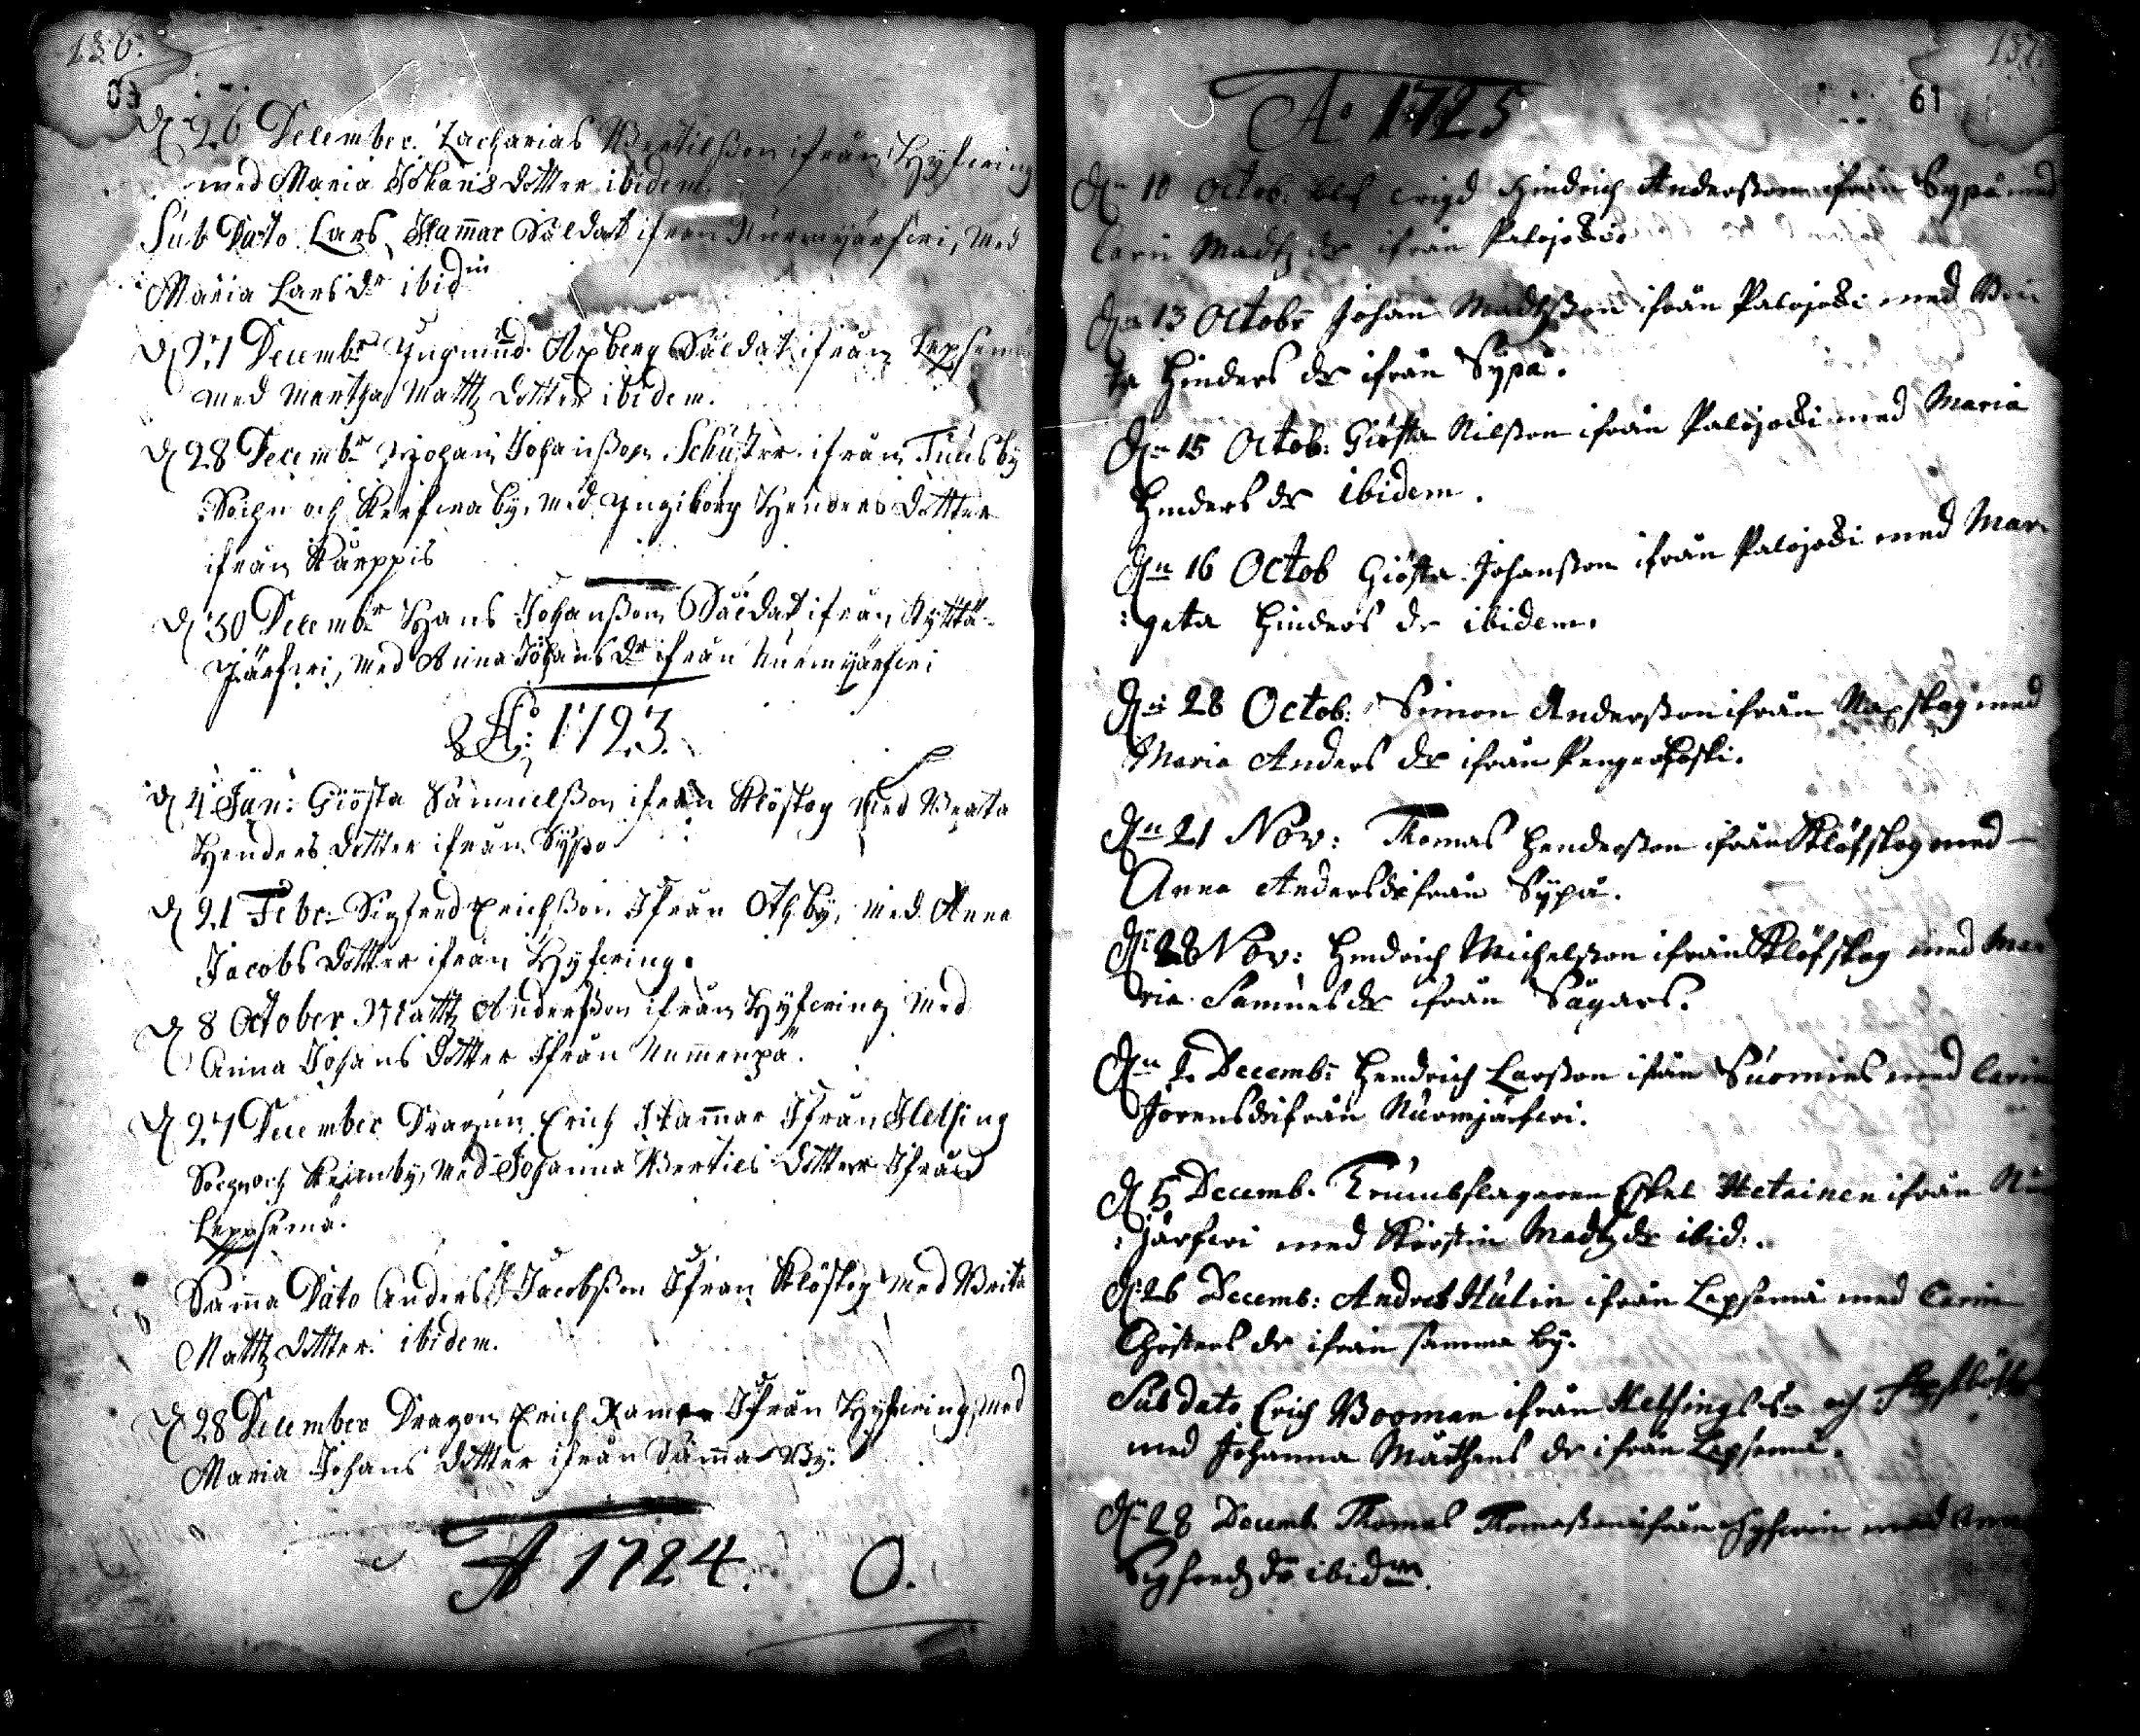 136.
D 26 December. Zacharias Bertilßon ifrån Hyfwing
med Maria Johans dotter ibidem.
Sub Dato Lars Hammar Såldat ifrån Nurmijärfwi, med
Maria Lars dr ibid
D 27 Decembr Yngmund Åxberg Såldat ifrån Lepsemä
med Martha Mattz dotter ibidem.
D 28 Decembr Johan Johanßon Schuster ifrån Tuusby
Sochn och Kerfwa by, med Yngiborg Henders Dotter
ifrån Kårppis
D 30 Decembr Hans Johanßon Såldat ifrån Kyttä-
Järfwi, med Anna Johans dr ifrån Nurmijärfwi
Ao: 1723.
D 4 Jan: Giösta Samuelßon ifrån Klöfskog med Beata
Henders dotter ifrån Sypå
D 21 Febr: Sigfred Erichßon Ifrån Othby, med Anna
Jacobs dotter ifrån Hyfwing.
D 8 October Mattz Anderßon ifrån Hyfwing med
Anna Johans dotter Ifrån Nummenpä.
D 27 December Dragun Erich Hammar Ifrån Helsing
Sochn och by, med Johanna Bertils dotter Ifrån
Lepsemä.
Samma Dato Anders Jacobßon Ifrån Klöfskog med Brita
Mattz dotter ibidem.
D 28 December Dragon Erich Ramer Ifrån Hyfwing, med
Maria Johans dotter ifrån Samma By.
A 1724. O.
137.
61
Ao 1725
Dn 10 Octob: blef wigd Hindrich Anderßon ifrån Sypå med
Carin Madtz dr ifrån Palojoki.
Dn 13 Octobr Johan Madtzßon ifrån Palojoki med Bri
ta Hinders dr ifrån Sypå.
Dn 15 Octob: Giösta Nilßon ifrån Palojoki med Maria
Hinders dr ibidem.
Dn 16 Octob Giösta Johanßon ifrån Palojoki med Mar
:geta Hinders dr ibidem.
Dn 28 Octob: Simon Anderßon ifrån Raxskog med
Maria Anders dr ifrån
Dn 21 Nov: Thomas Henderßon ifrån Klöfskog med
Anna Anders dr ifrån Sypå.
Dn 28 Nov: Hindrich Michelßon ifrån Klöfskog med Ma
ria Samuels dr ifrån Sågars.
Dn 2. Decembr Hendrich Larßon ifrån Suomies med Carin
Jörens dr ifrån Nurmijärfwi.
D 5 Decemb. Trumbslagaren Eskel Hetainen ifrån Nur
:järfwi med Kirstin Madtz dr ibid.
Dn 26 Decemb: Andres Hulin ifrån Lepsemä med Carin
Christers dr ifrån samma by.
Sub dato Erich Booman ifrån Helsings Sn och
med Johanna Mårthens dr ifrån Lepsemä.
Dn 28 Decemb. Thomas Thomaßon ifrån Hyfwin med Anna
Sigfredz dr ibidm.